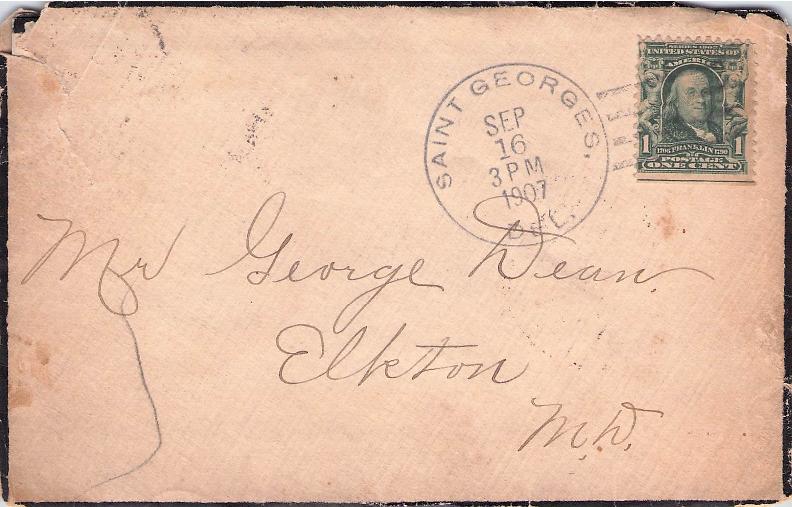 SAINT GEORGES,
SEP
16
3 PM
1907
DEL.
SERIES 1902
UNITED STATES OF
AMERICA
1 FRANKLIN 1
POSTAGE
ONE CENT
Mr George Dean
Elkton
M.D.